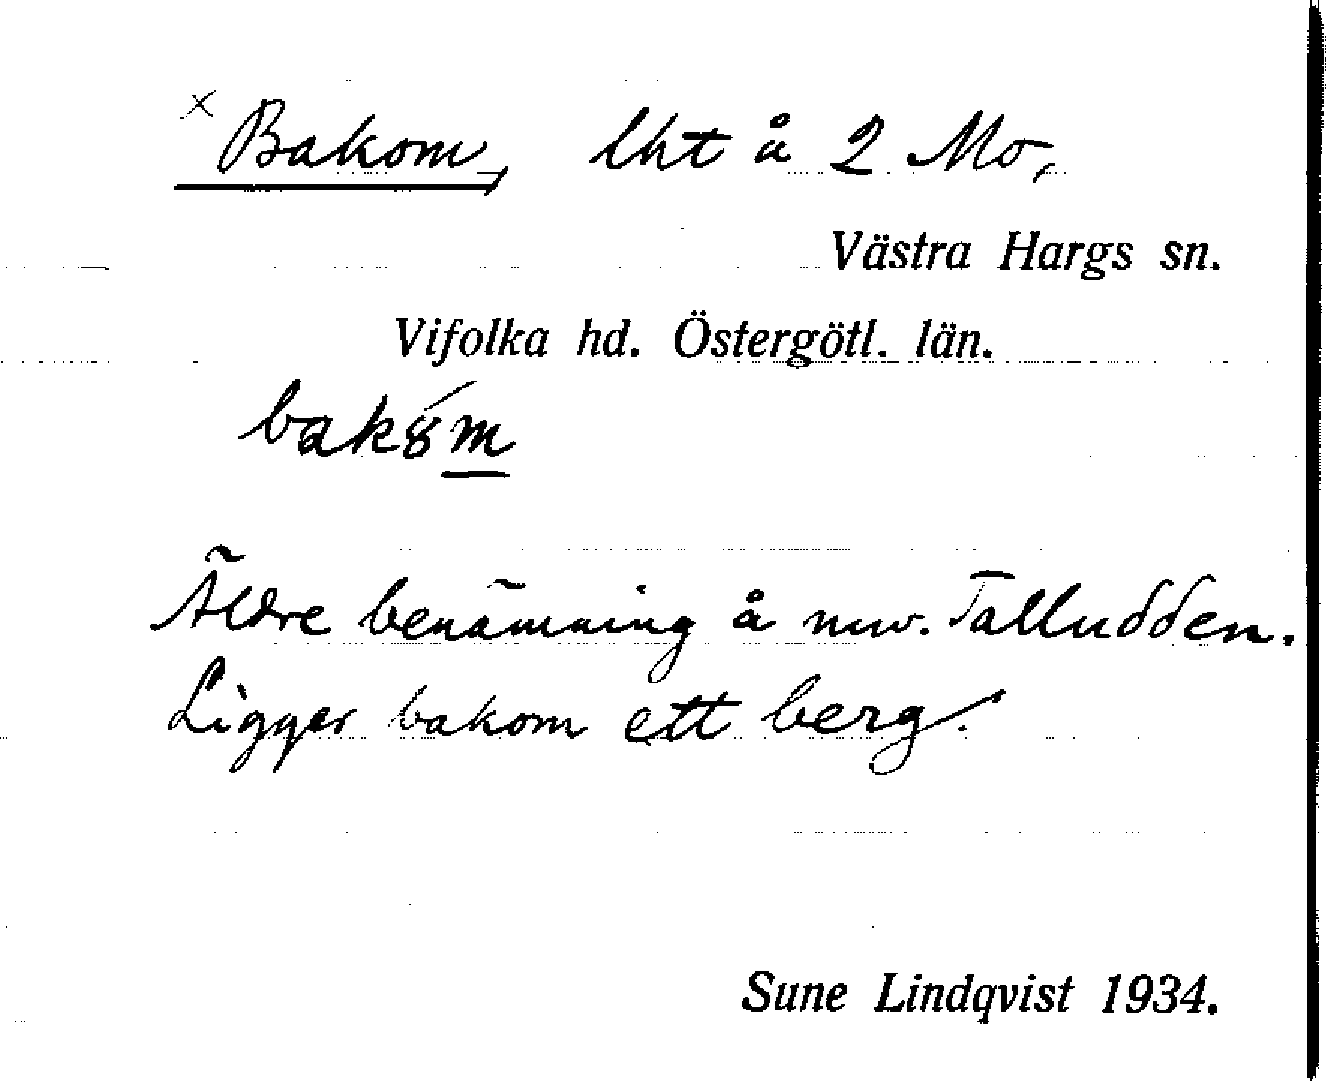 x Bakom, lht å 2 Mo,
Västra Hargs sn.
Vifolka hd. Östergötl. län.
bak8́m
Äldre benämning å nuv. Talludden.
Ligger bakom ett berg.
Sune Lindqvist 1934.